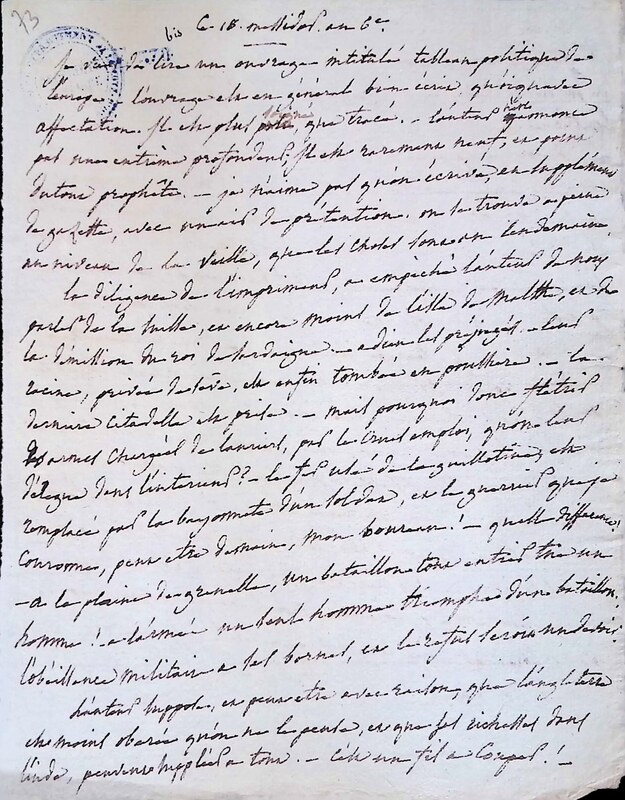 73
bis
Ce 18. messidor an 6e
je viens de lire un ouvrage intitulé tableau politique de
l'europe. l'ouvrage est en général bien écrit, quoiqu'avec
affectation. Il est plus soigné, que tracé. - l'auteur n'annonce
pas une extrême profondeur; Il est rarement neuf, et point
du tout prophête. - je n'aime pas qu'on écrive, en supplément
de gazette, avec un air de prétention. on se trouve a peine
au niveau de la veille, que les choses sont au lendemain.
la diligence de l'imprimeur, a empêché l'auteur de nous
parler de la suisse, et encore moins de l'isle de Malthe, et de
la démission du roi de Sardaigne. - adieu les préjugés. - leur
racine, privée de sève, est enfin tombée en poussière. - la
derniere citadelle est prise. - mais pourquoi donc flétrir
des armes chargées de lauriers, par le cruel emploi, qu'on leur
délegue dans l'intérieur? - le fer usé de la guillotine, est
remplacé par la bayonnete d'un soldat, et le guerrier que je
couronne, peut etre demain, mon boureau! - quelle difference!
- a la plaine de grenelle, un bataillon tout entier tue un
homme! a l'armée un seul homme triomphe d'un bataillon.
l'obéissance militaire a ses bornes, et le refus seroit un devoir!
l'auteur suppose, et peut etre avec raison, que l'angleterre
est moins obérée qu'on ne le pense, et que ses richesses dans
l'inde, peuvent suppléer a tout. - C'est un fil a couper! -